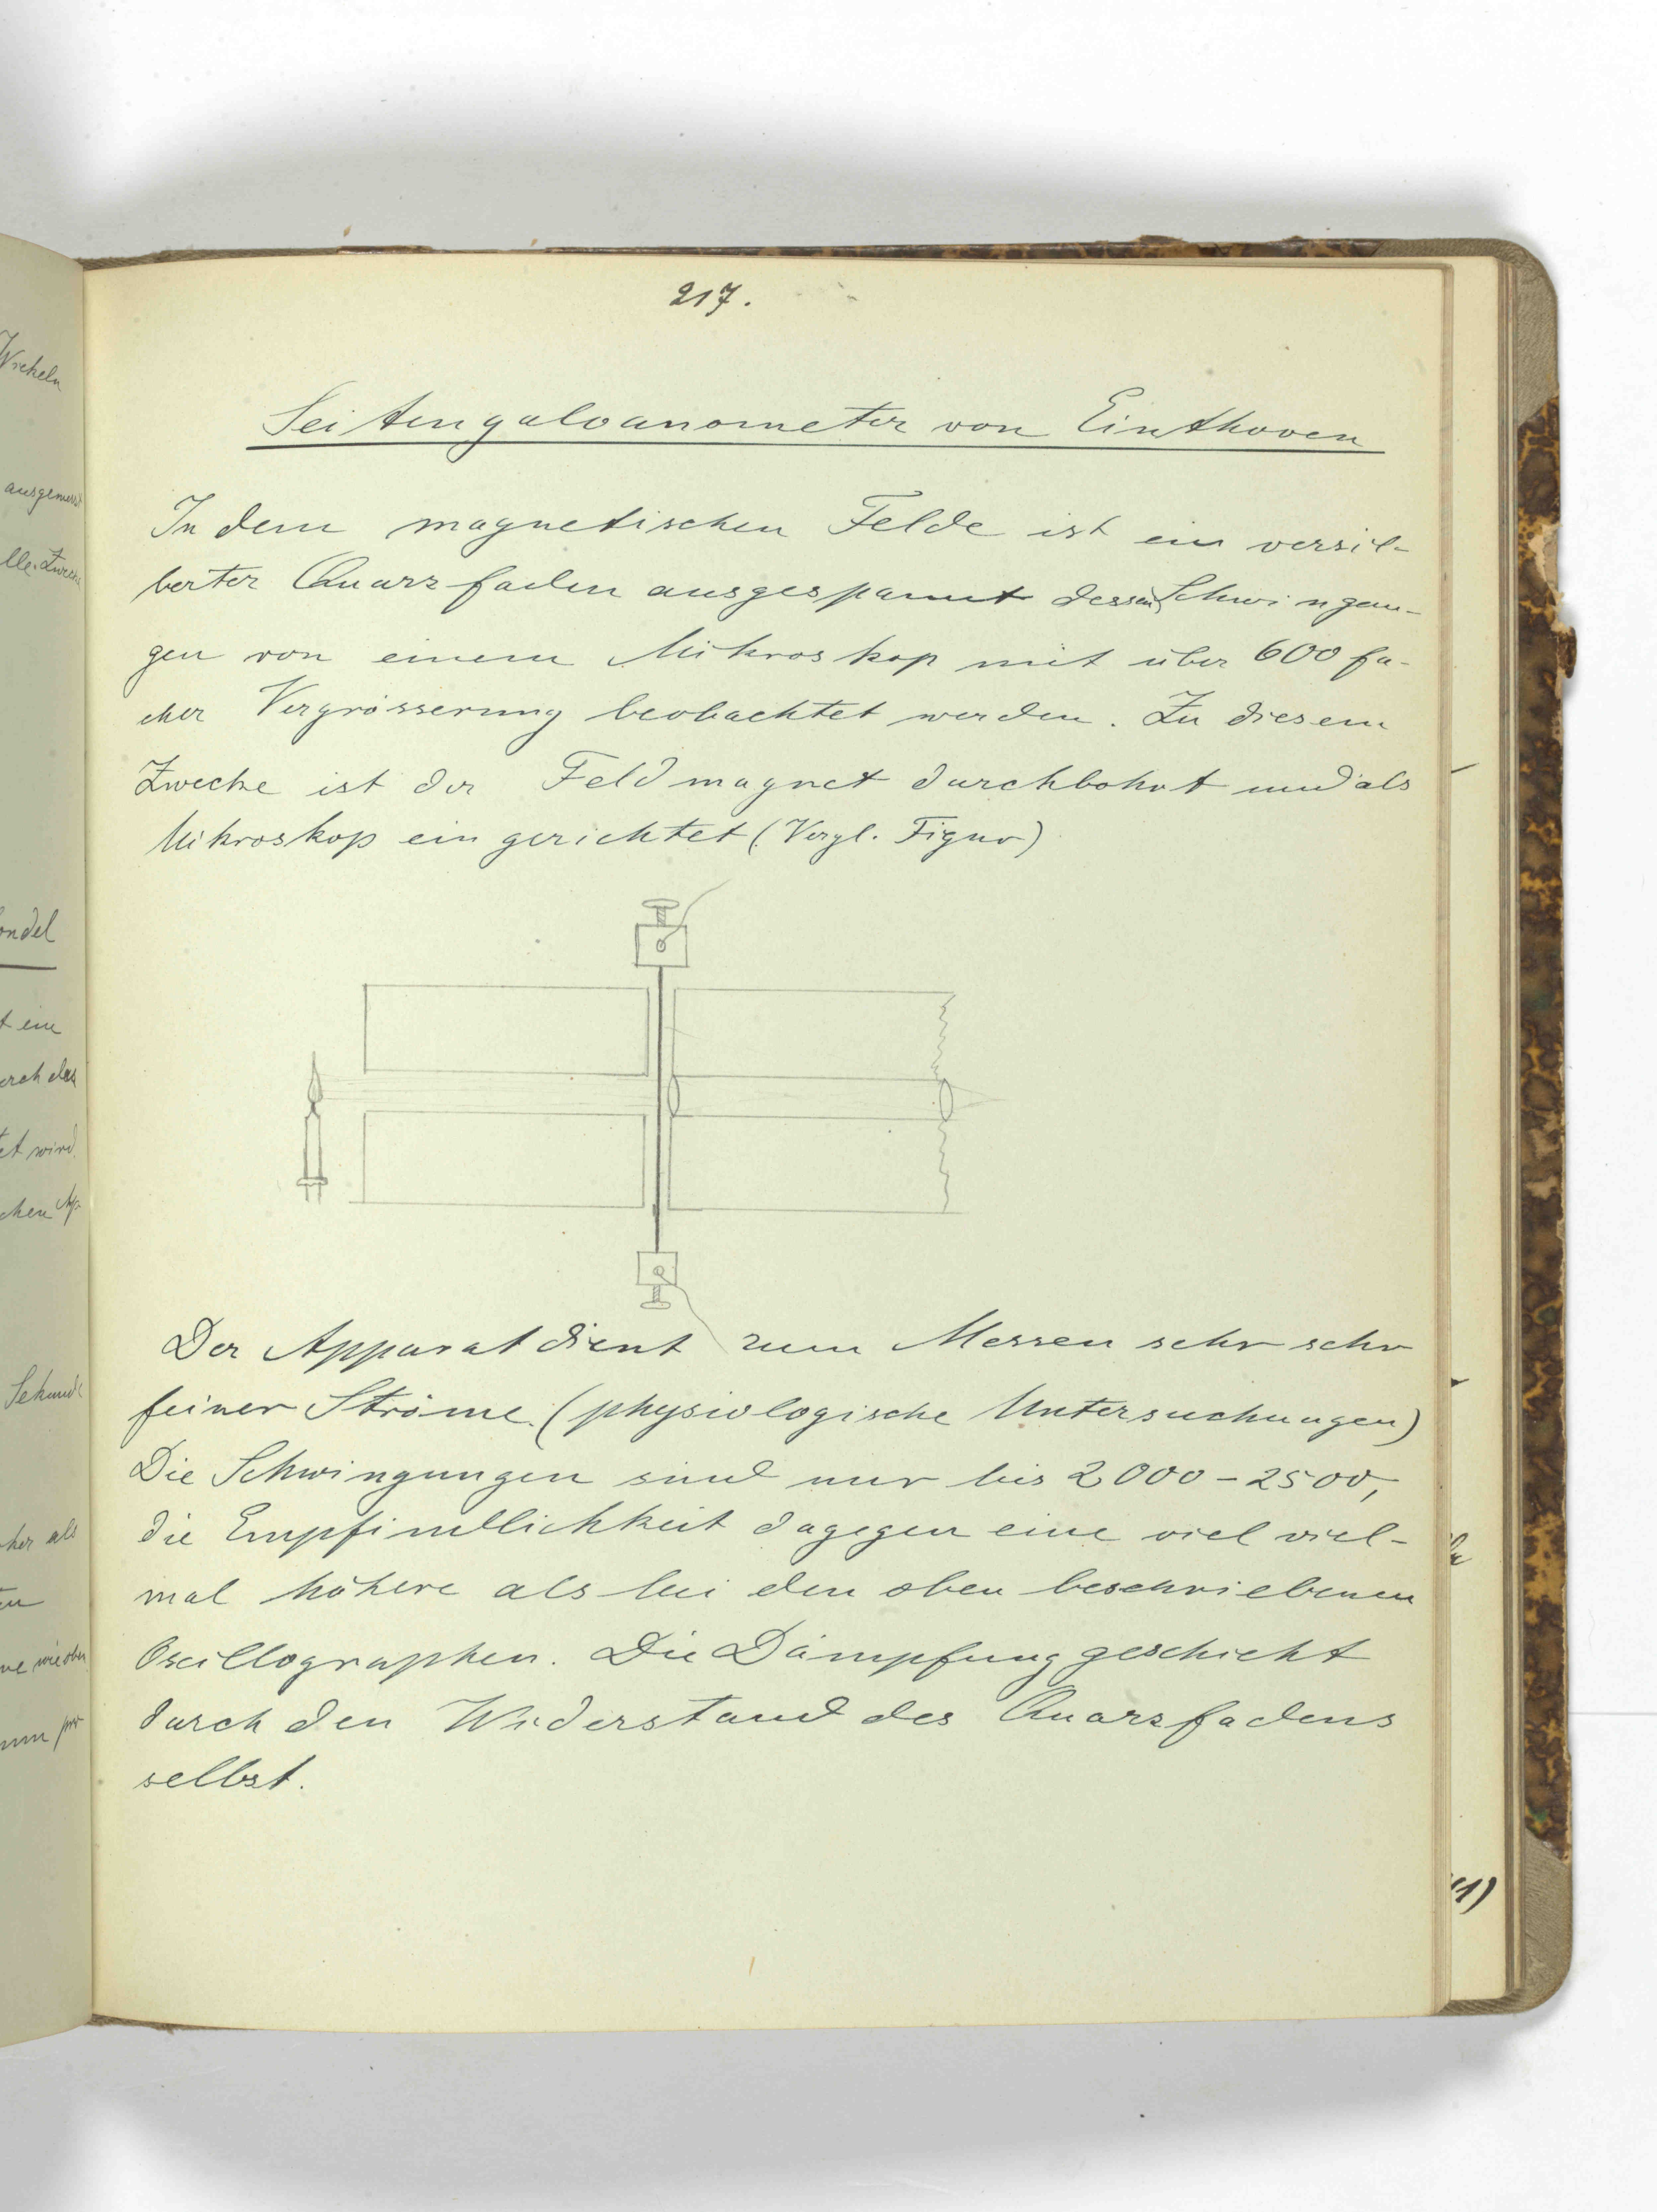 217.
Seitengalvanometer von Einthoven
In dem magnetischen Felde ist ein versil-
berter Quarzfaden ausgespannt dessen Schwingun-
gen von einem Mikroskop mit über 600 fa-
cher Vergrösserung beobachtet werden. Zu diesem
Zwecke ist der Feldmagnet durchbohrt und als
Mikroskop eingerichtet (Vergl. Figur)
Der Apparat dient zum Messen sehr sehr
feiner Ströme. (physiologische Untersuchungen)
Die Schwingungen sind nur bis 2000-2500,
die Empfindlichkeit dagegen eine viel viel-
mal höhere als bei den oben beschriebenen
Oscillographen. Die Dämpfung geschieht
durch den Widerstand des Quarzfadens
selbst.
Wickeln
ondel
t ein
erch das
et wird.
chen Ap-
Sekunde
her als
ne wie oben
mm pro
11)